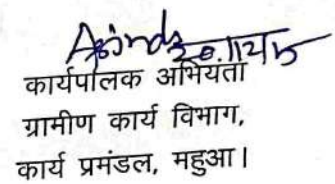 कार्यपालक अभियंता
ग्रामीण कार्य विभाग,
कार्य प्रमंडल, महुआ।